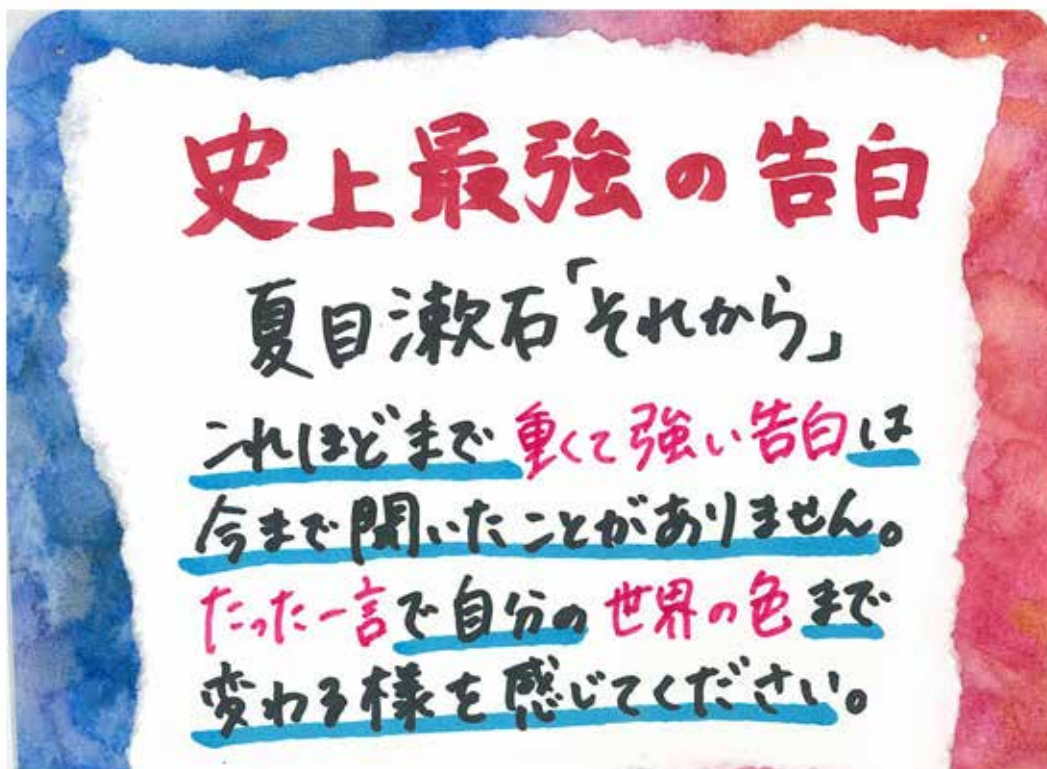 史上最強の告白
夏目漱石「それから」
これほどまで重くて強い告白は
今まで聞いたことがありません。
たった一言で自分の世界の色まで
変わる様を感じてください。